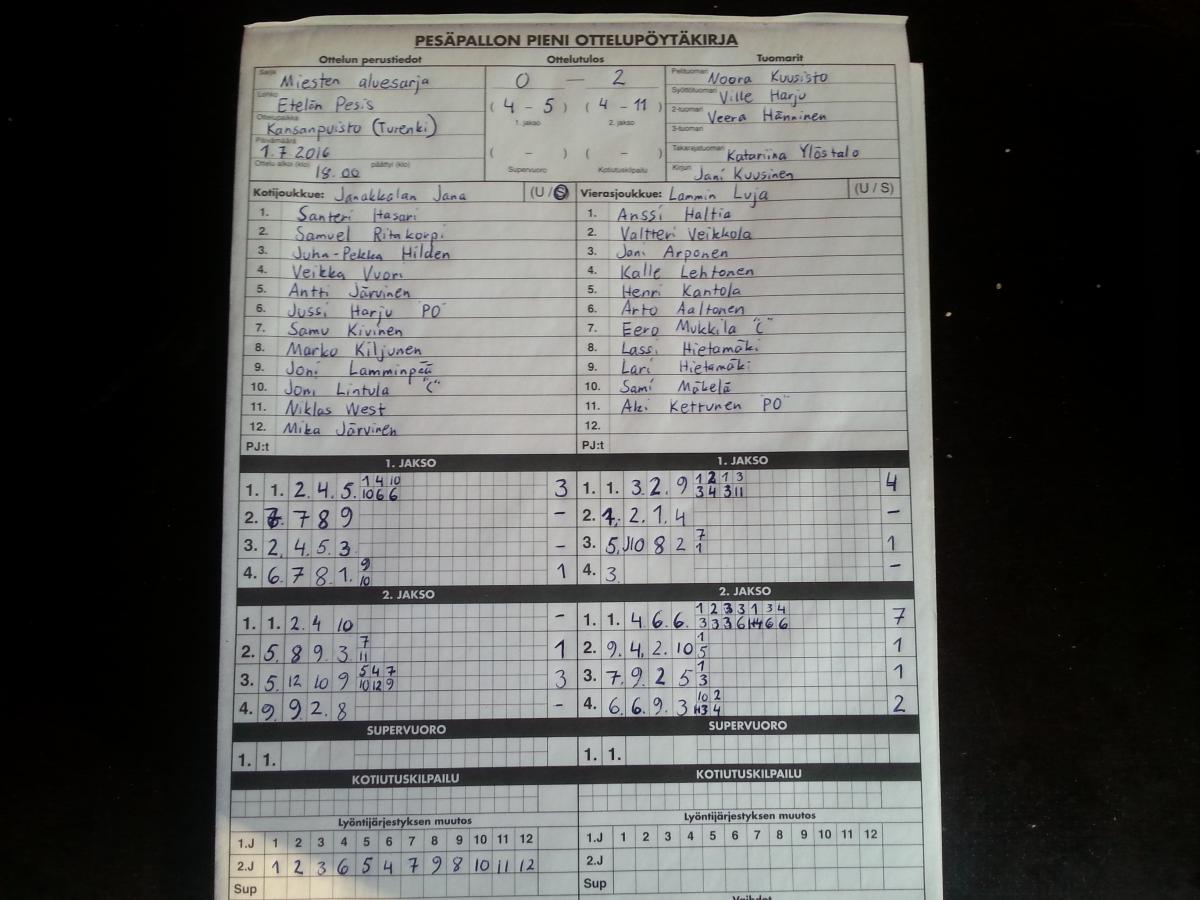 PESÄPALLON PIENI OTTELUPÖYTÄKIRJA
Ottelun perustiedot Ottelutulos Tuomarit
Sarja Miesten aluesarja 0 — 2 Pelituomari Noora Kuusisto
Lohko Etelän Pesis ( 4 - 5 ) ( 4 - 11 ) Syöttötuomari Ville Harju
Ottelupaikka Kansanpuisto (Turenki) 1. jakso 2. jakso 2-tuomari Veera Hänninen
3-tuomari
Päivämäärä 1.7 2016 ( - ) ( - ) Takarajatuomari Katariina Ylöstalo
Ottelu alkoi (klo) 18.00 päättyi (klo) Supervuoro Kotiutuskilpailu Kirjuri Jani Kuusinen
Kotijoukkue: Janakkalan Jana (U / S) Vierasjoukkue: Lammin Luja (U / S)
1. Santeri Hasari 1. Anssi Haltia
2. Samuel Ritakorpi 2. Valtteri Veikkola
3. Juha-Pekka Hilden 3. Joni Arponen
4. Veikka Vuori 4. Kalle Lehtonen
5. Antti Järvinen 5. Henri Kantola
6. Jussi Harju "PO" 6. Arto Aaltonen
7. Samu Kivinen 7. Eero Mukkila "C"
8. Marko Kiljunen 8. Lassi Hietamäki
9. Joni Lamminpää 9. Lari Hietamäki
10. Joni Lintula "C" 10. Sami Mäkelä
11. Niklas West 11. Aki Kettunen "PO"
12. Mika Järvinen 12.
PJ:t PJ:t
1. JAKSO 1. JAKSO
1. 1. 2. 4. 5. 1 4 10 3 1. 1. 3. 2. 9 1 2 1 3 4
10 6 6 3 4 3 11
2. 7 8 9 - 2. 1. 2. 1. 4 -
3. 2. 4. 5. 3 - 3. 5. 10 8 2 7 1
1
4. 6. 7 8 1. 9 1 4. 3. -
10
2. JAKSO 2. JAKSO
1. 1. 2. 4 10 - 1. 1. 4 6. 6. 1 2 3 3 1 3 4 7
3 3 3 6 4 6 6
2. 5. 8 9 3 7 1 2. 9. 4. 2. 10 1 1
11 5
3. 5. 12 10 9 5 4 7 3 3. 7. 9 2 5 1 1
10 12 9 3
4. 9 9 2. 8 - 4. 6. 6. 9. 3 10 2 2
3 4
SUPERVUORO SUPERVUORO
1. 1. 1. 1.
KOTIUTUSKILPAILU KOTIUTUSKILPAILU
Lyöntijärjestyksen muutos Lyöntijärjestyksen muutos
1.J 1 2 3 4 5 6 7 8 9 10 11 12 1.J 1 2 3 4 5 6 7 8 9 10 11 12
2.J 1 2 3 6 5 4 7 9 8 10 11 12 2.J
Sup Sup
Vaihdot